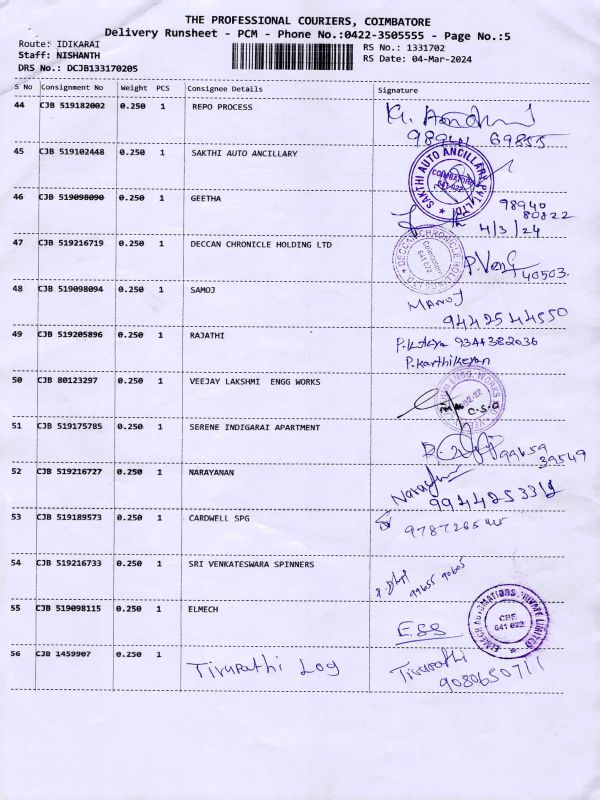 THE PROFESSIONAL COURIERS, COIMBATORE
Delivery Runsheet - PCM - Phone No.:0422-3505555 - Page No.:5
Route: IDIKARAI
Staff: NISHANTH
DRS No.: DCJB133170205
RS No.: 1331702
RS Date: 04-Mar-2024
S No Consignment No Weight PCS Consignee Details Signature
44 CJB 519182002 0.250 1 REPO PROCESS
69855
45 CJB 519102448 0.250 1 SAKTHI AUTO ANCILLARY
SAKTHI AUTO ANCILLARY PVT. LTD
COIMBATORE
641 022
46 CJB 519098090 0.250 1 GEETHA
98940
80822
4/3/24
47 CJB 519216719 0.250 1 DECCAN CHRONICLE HOLDING LTD
DECCAN CHRONICLE HOLDINGS LTD
Coimbatore
641 022
40503.
48 CJB 519098094 0.250 1 SAMOJ
MANOJ
9442544550
49 CJB 519205896 0.250 1 RAJATHI
9344382036
P.karthikeyan
50 CJB 80123297 0.250 1 VEEJAY LAKSHMI ENGG WORKS
ENGG. WORKS
C.S.O
51 CJB 519175785 0.250 1 SERENE INDIGARAI APARTMENT
99659
39549
52 CJB 519216727 0.250 1 NARAYANAN
53 CJB 519189573 0.250 1 CARDWELL SPG
54 CJB 519216733 0.250 1 SRI VENKATESWARA SPINNERS
99655 90605
55 CJB 519098115 0.250 1 ELMECH
ESS
ELMECH AUTOMATIONS PRIVATE LIMITED
CBE
641 022
56 CJB 1459907 0.250 1 Tirupathi Log
Tirupathi
9080650711